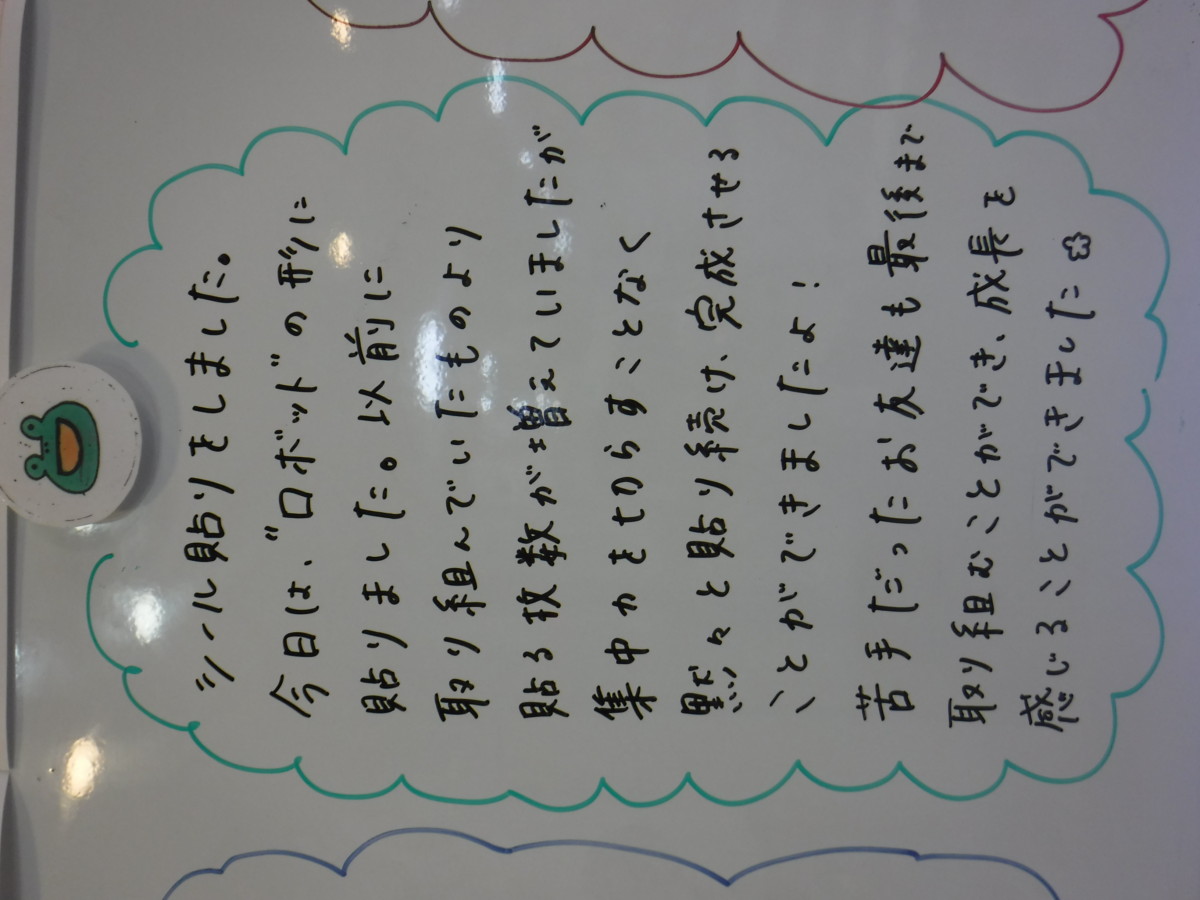 シール貼りをしました。
今日は、"ロボット"の形に
貼りました。以前に
取り組んでいたものより
貼る枚数が増えていましたが
集中力を切らすことなく
黙々と貼り続け、完成させる
ことができましたよ!
苦手だったお友達も最後まで
取り組むことができ、成長を
感じることができました